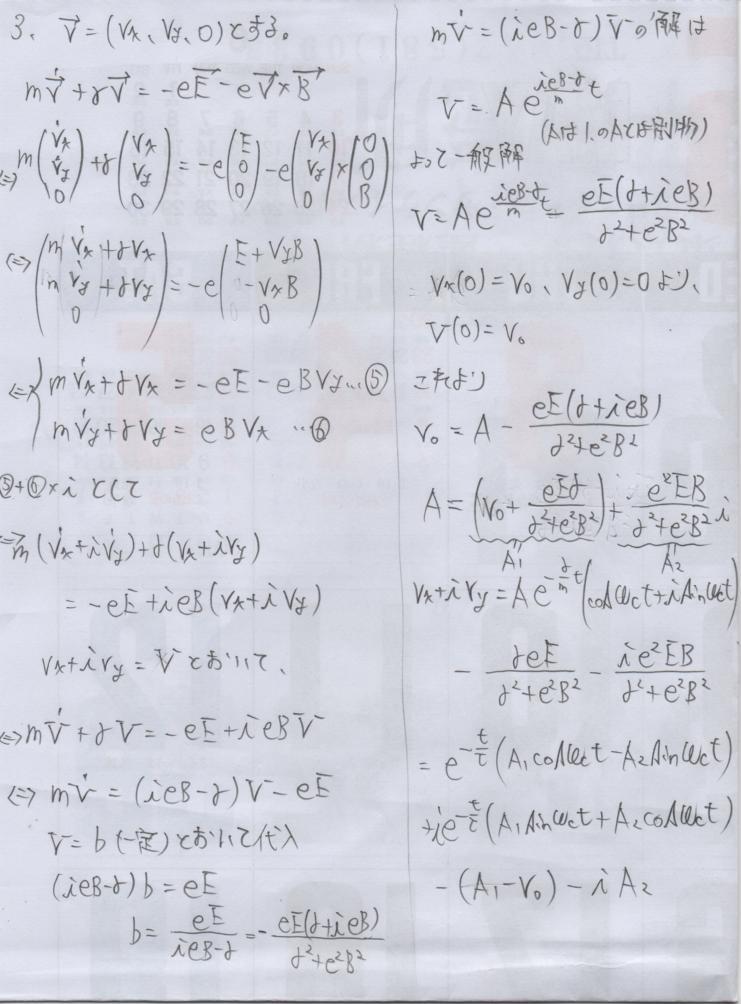 3. V⃗ = (Vx、Vy、0)とする。
mV⃗̇ + γV⃗ = -eE⃗ - eV⃗×B⃗
⇔ m(V̇x V̇y 0) + γ(Vx Vy 0) = -e(E 0 0) - e(Vx Vy 0)×(0 0 B)
⇔ (mV̇x+γVx mV̇y+γVy 0) = -e(E+VyB -VxB 0)
⇔ { mV̇x+γVx = -eE-eBVy…⑤
mV̇y+γVy = eBVx …⑥
⑤+⑥×i として
⇒ m(V̇x+iV̇y)+γ(Vx+iVy)
= -eE+ieB(Vx+iVy)
Vx+iVy = V とおいて、
⇔ mV̇+γV = -eE+ieBV
⇔ mV̇ = (ieB-γ)V-eE
V=b(一定)とおいて代入
(ieB-γ)b = eE
b = eE/(ieB-γ) = - eE(γ+ieB)/(γ²+e²B²)
mV̇=(ieB-γ)Vの解は
V = A e^((ieB-γ)/m t)
(Aは1.のAとは別物)
よって一般解
V = Ae^((ieB-γ)/m t) - eE(γ+ieB)/(γ²+e²B²)
Vx(0)=V₀、Vy(0)=0より、
V(0)=V₀
これより
V₀ = A - eE(γ+ieB)/(γ²+e²B²)
A = (V₀ + eEγ/(γ²+e²B²)) + e²EB/(γ²+e²B²) i
A₁ A₂
Vx+iVy = Ae^(-γ/m t)(cosωct+isinωct)
- γeE/(γ²+e²B²) - ie²EB/(γ²+e²B²)
= e^(-t/τ)(A₁cosωct-A₂sinωct)
+ie^(-t/τ)(A₁sinωct+A₂cosωct)
-(A₁-V₀)-iA₂